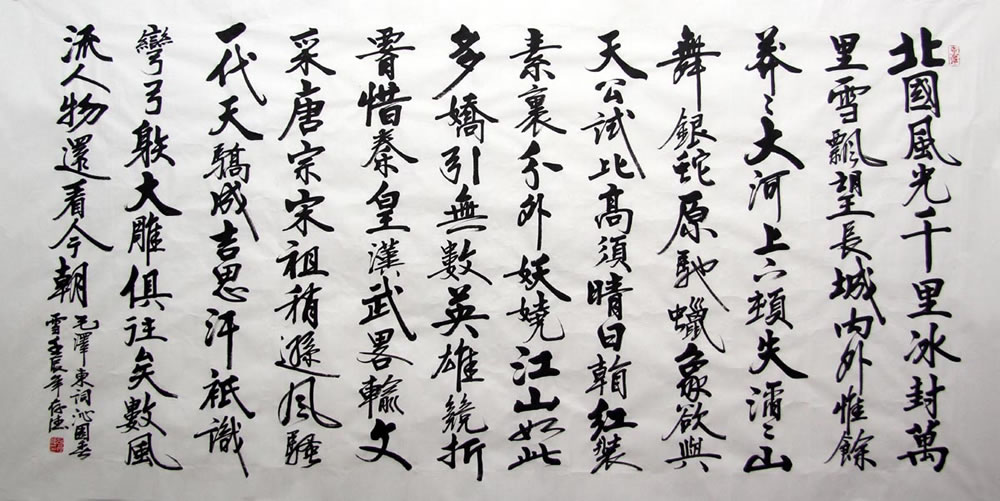 北國風光千里冰封萬
里雪飄望長城內外惟餘
莽〻大河上下頓失滔〻山
舞銀蛇原馳蠟象欲與
天公試比高須晴日看紅裝
素裹分外妖嬈江山如此
多嬌引無數英雄競折
腰惜秦皇漢武畧輸文
采唐宗宋祖稍遜風騷
一代天驕成吉思汗祗識
彎弓射大雕俱往矣數風
流人物還看今朝
毛澤東詞沁園春
雪壬辰年